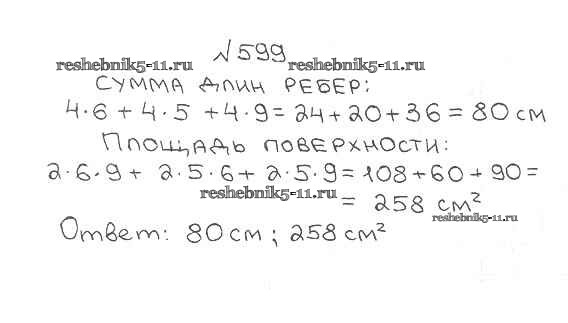 №599
reshebnik5-11.ru reshebnik5-11.ru
СУММА ДЛИН РЕБЕР:
4·6 + 4·5 + 4·9 = 24 + 20 + 36 = 80 см
ПЛОЩАДЬ ПОВЕРХНОСТИ:
2·6·9 + 2·5·6 + 2·5·9 = 108 + 60 + 90 =
reshebnik5-11.ru
= 258 см²
reshebnik5-11.ru
Ответ: 80 см; 258 см²